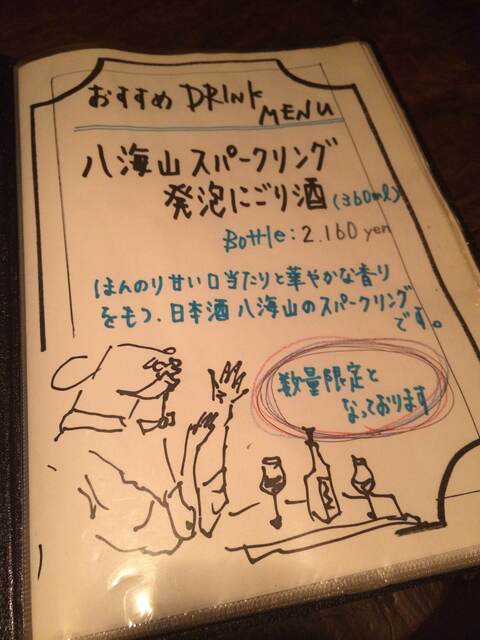 おすすめ DRINK
MENU
八海山スパークリング
発泡にごり酒(360ml)
Bottle: 2.160 yen
ほんのり甘い口当たりと華やかな香り
をもつ、日本酒 八海山のスパークリング
です。
数量限定と
なっております